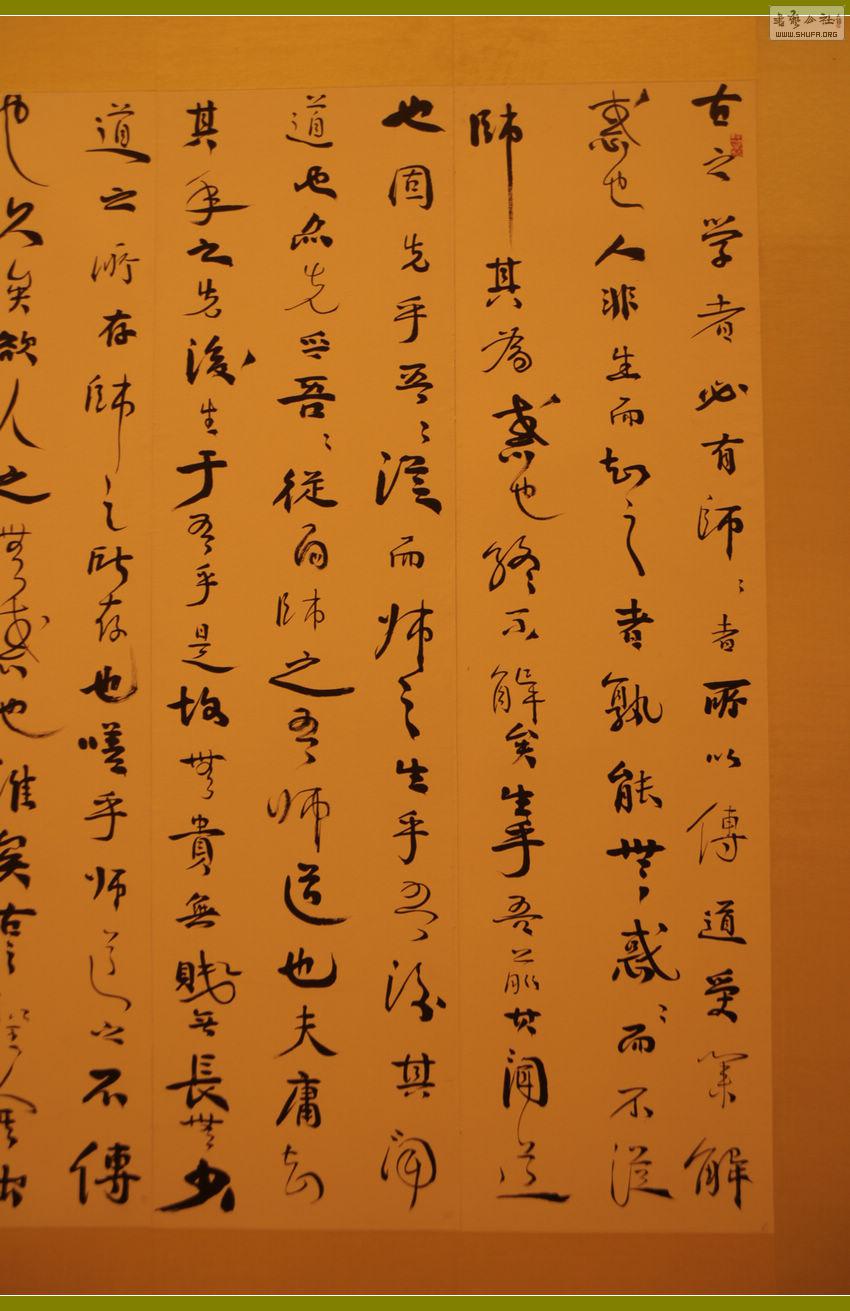 古之学者必有師〻者所以傳道受業解
惑也人非生而知之者孰能無惑〻而不從
師其為惑也終不解矣生乎吾前其聞道
也固先乎吾〻從而师之生乎吾後其聞
道也亦先乎吾〻從而師之吾师道也夫庸知
其年之先後生于吾乎是故無貴無賤無長無少
道之所存師之所存也嗟乎师道之不傳
也久矣欲人之無惑也難矣古之聖人其出
WWW.SHUFA.ORG